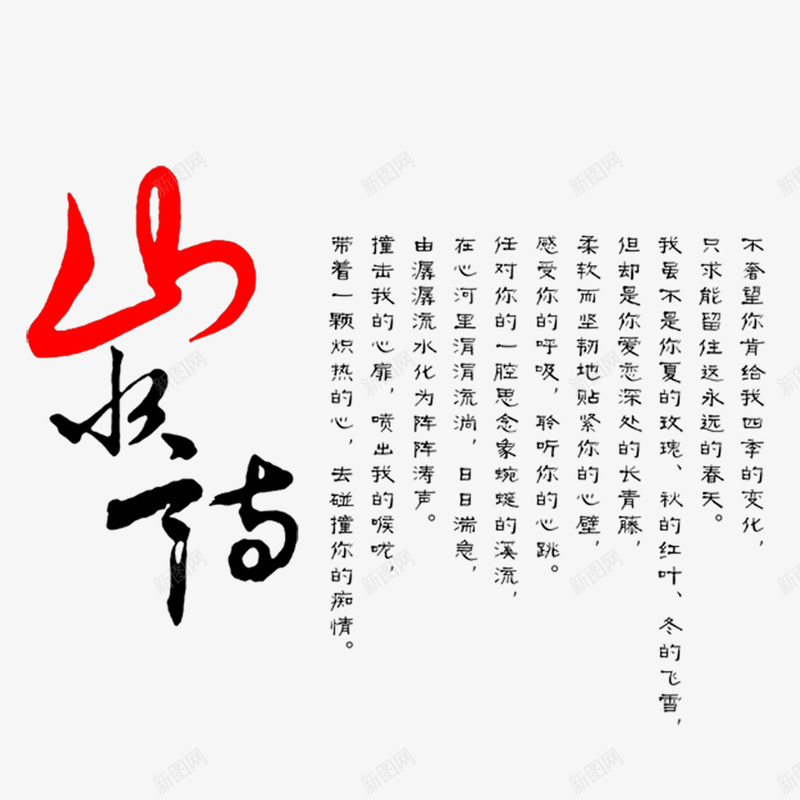 不奢望你肯给我四季的变化，
只求能留住这永远的春天。
我虽不是你夏的玫瑰、秋的红叶、冬的飞雪，
但却是你爱恋深处的长青藤，
柔软而坚韧地贴紧你的心壁，
感爱你的呼吸，聆听你的心跳。
任对你的一腔思念象蜿蜒的溪流，
在心河里涓涓流淌，日日湍急，
由潺潺流水化为阵阵涛声。
撞击我的心扉，喷出我的喉咙，
带着一颗炽热的心，去碰撞你的痴情。
山水诗
新图网